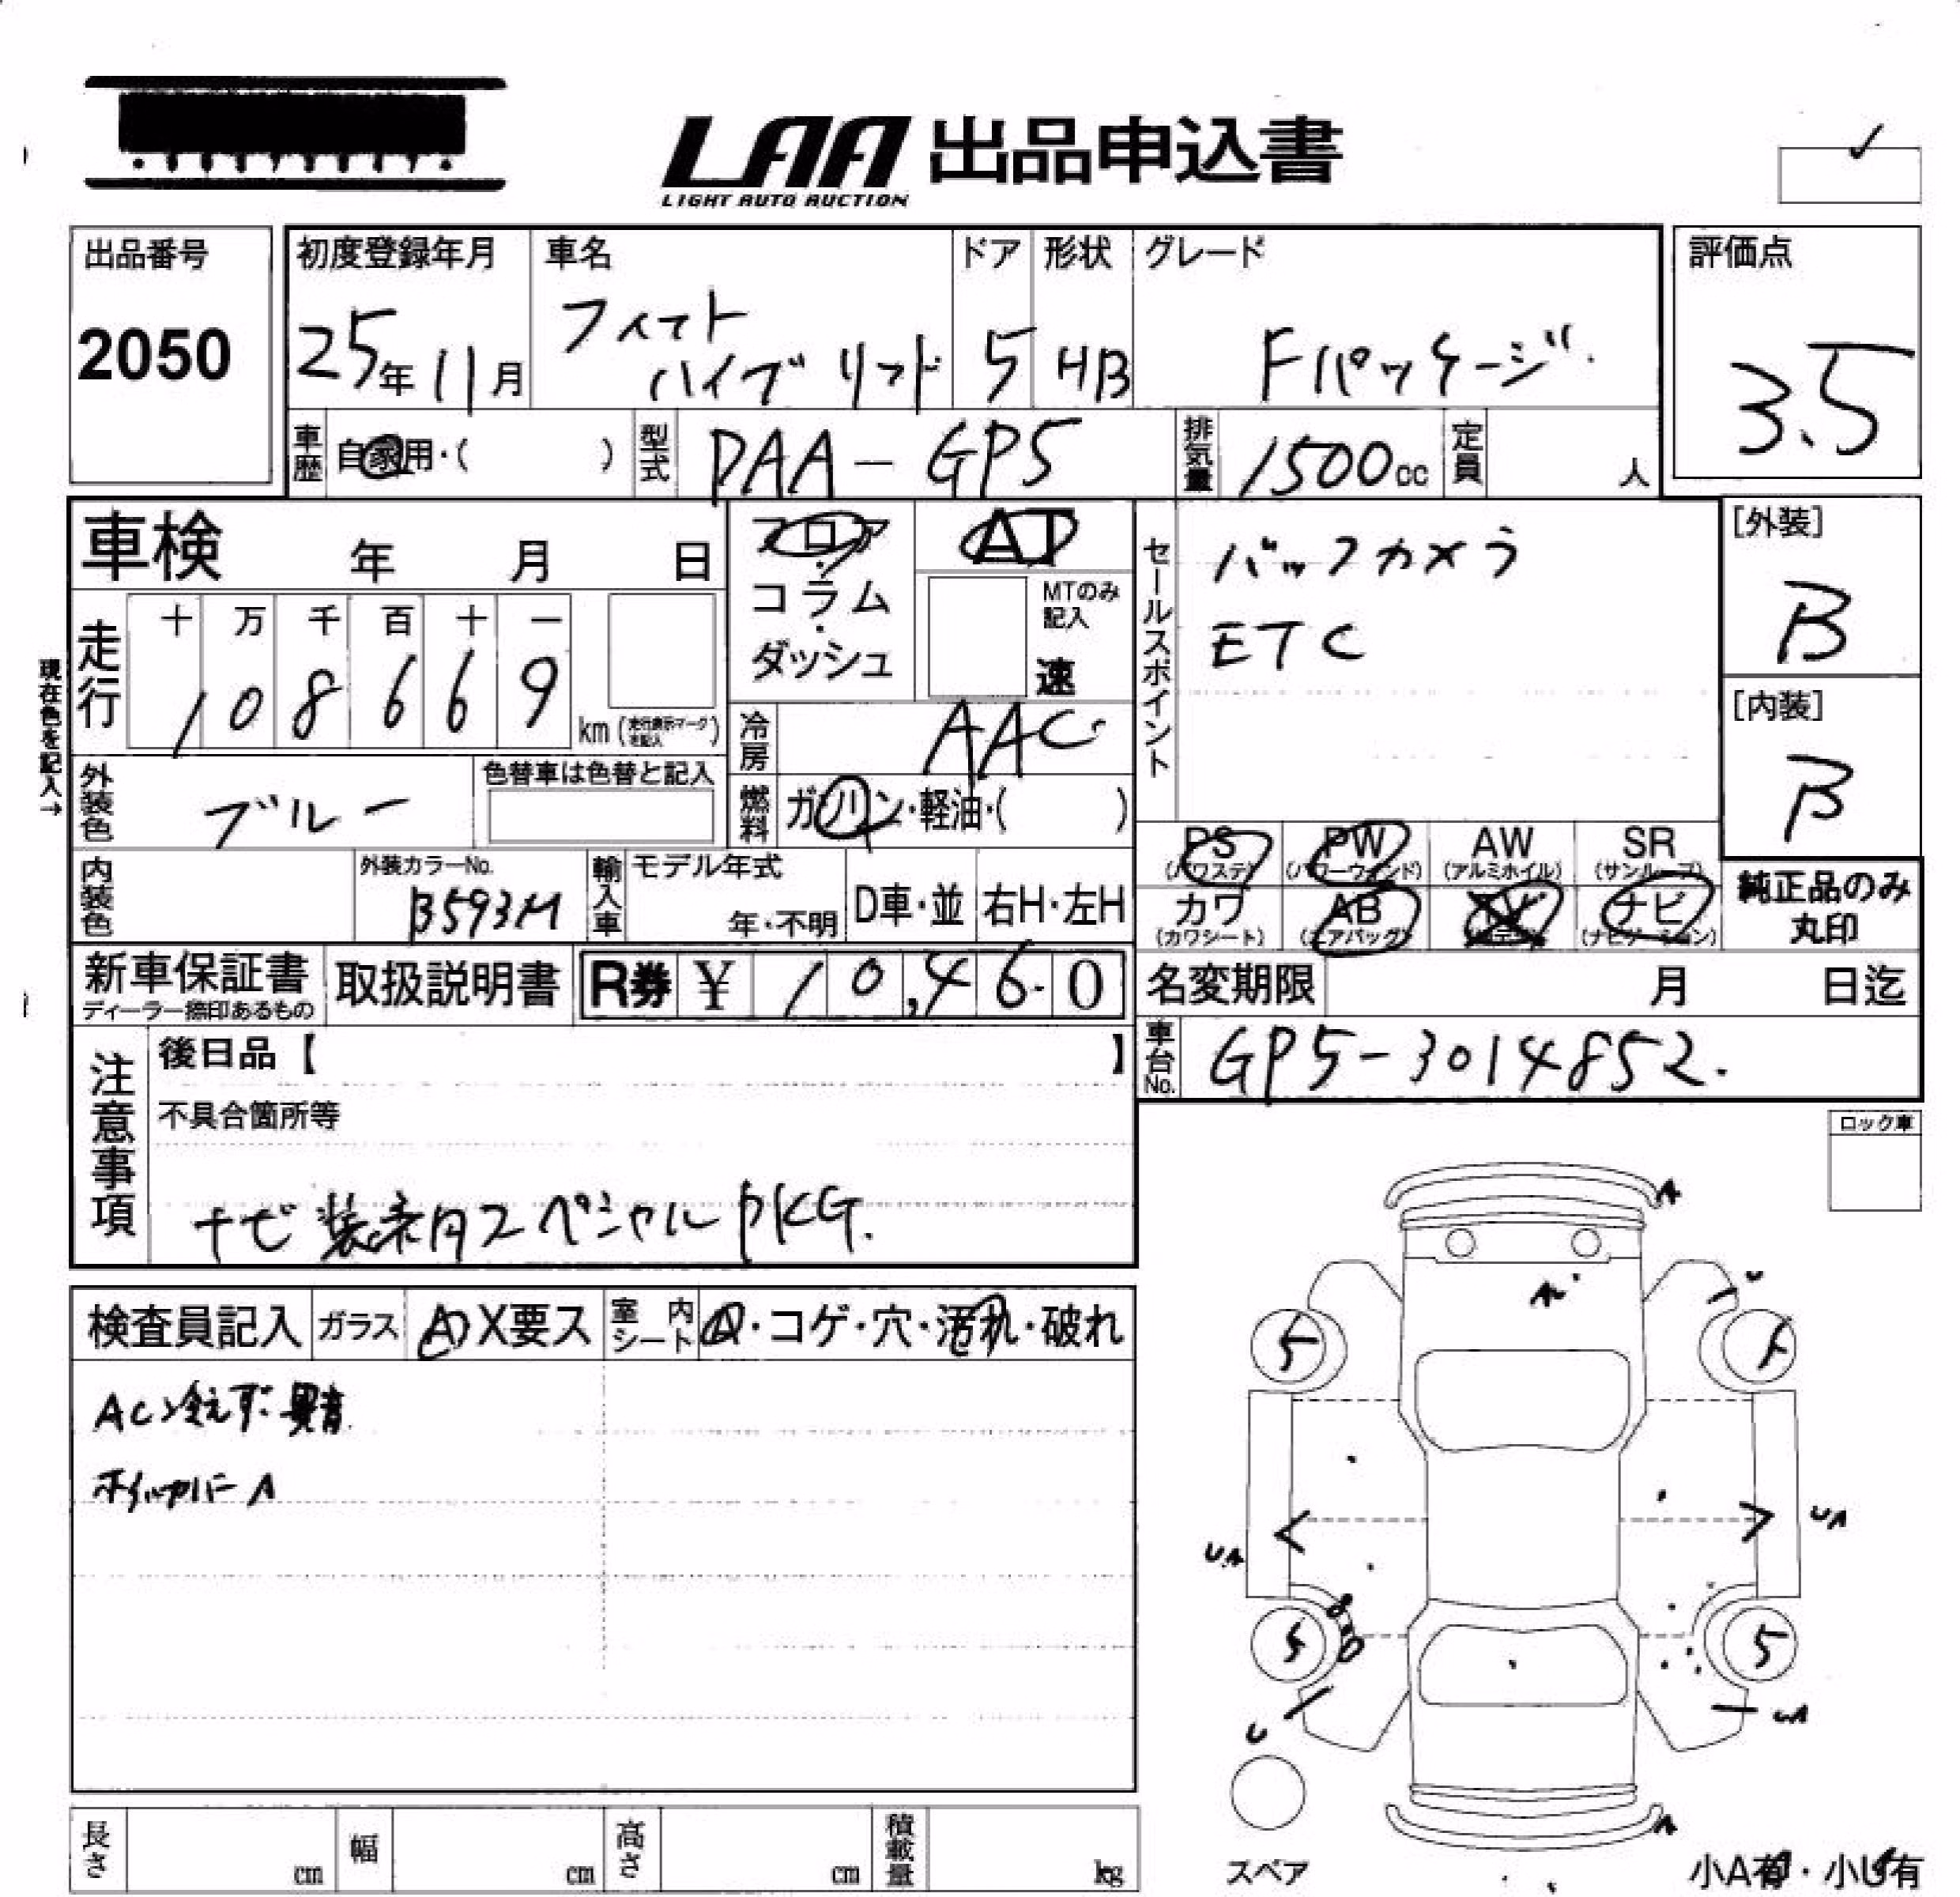 LAA 出品申込書
LIGHT AUTO AUCTION
出品番号
2050
初度登録年月
25年11月
車名
フィット
ハイブリッド
ドア
5
形状
HB
グレード
Fパッケージ
評価点
3.5
車歴 自家用・( )
型式 DAA-GP5
排気量 1500cc
定員 人
車検 年 月 日
フロア・コラム・ダッシュ
AT
MTのみ記入
速
走行
十 万 千 百 十 一
1 0 8 6 6 9
km (走行表示マークを記入)
現在色を記入→
冷房 AAC
外装色 ブルー
色替車は色替と記入
燃料 ガソリン・軽油・( )
内装色
外装カラーNo.
B593M
輸入車
モデル年式
年・不明
D車・並
右H・左H
セールスポイント
バックカメラ
ETC
[外装]
B
[内装]
B
PS (パワステ)
PW (パワーウィンド)
AW (アルミホイル)
SR (サンルーフ)
カワ (カワシート)
AB (エアバッグ)
TV
ナビ (ナビゲーション)
純正品のみ
丸印
新車保証書
ディーラー捺印あるもの
取扱説明書
R券 ¥ 10,460
名変期限 月 日迄
車台No. GP5-3014852.
注意事項
後日品【 】
不具合箇所等
ナビ装着用スペシャルPKG.
ロック車
検査員記入
ガラス A X要ス
室内シート
・コゲ・穴・汚れ・破れ
AC冷えず 異音
ホイールカバーA
A
A
U
5
5
UA
UA
5
5
U
UA
A
スペア
小A有・小U有
長さ cm
幅 cm
高さ cm
積載量 kg